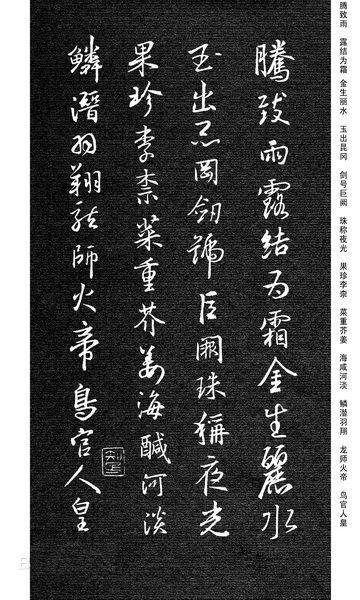 腾致雨 露结为霜 金生丽水 玉出昆冈 剑号巨阙 珠称夜光 果珍李柰 菜重芥姜 海咸河淡 鳞潜羽翔 龙师火帝 鸟官人皇
騰致雨露結为霜金生麗水
玉出昆岡劒號巨闕珠稱夜光
果珍李柰菜重芥姜海醎河淡
鱗潛羽翔龍師火帝鳥官人皇